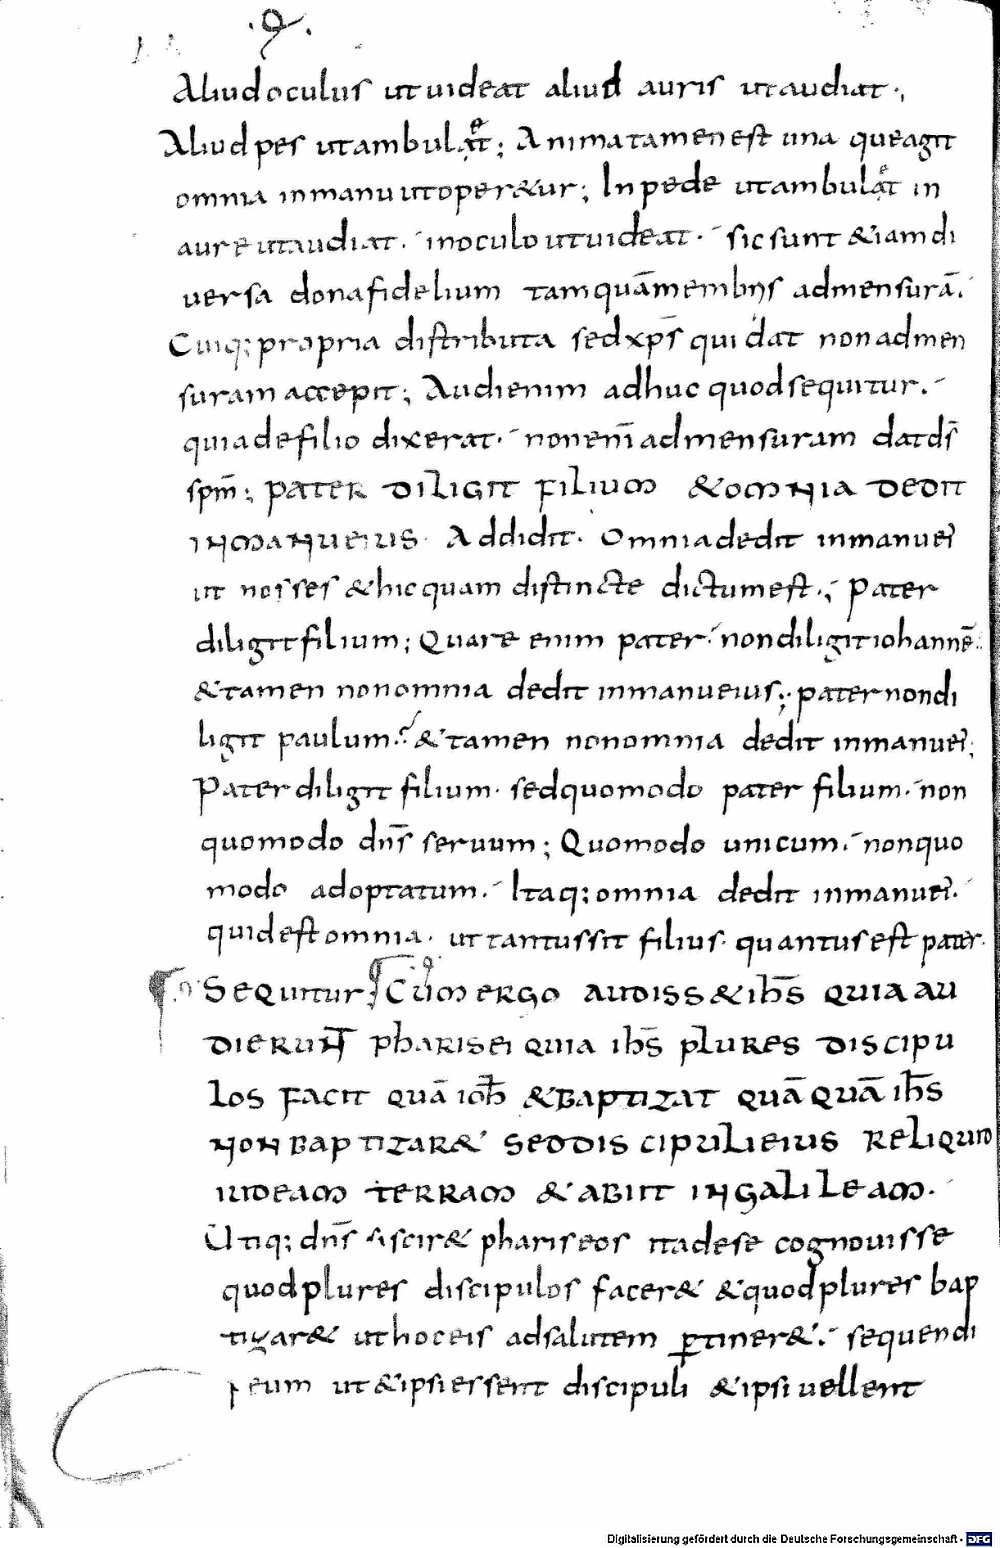 Aliud oculus ut uideat aliud auris ut audiat·,
Aliud pes ut ambulat; Anima tamen est una que agit
omnia in manu ut oper&ur; In pede ut ambulat in
aure ut audiat. in oculo ut uideat. sic sunt &iam di
uersa dona fidelium tamquā membris ad mensurā.
Cuiq; propria distributa sed xp̄s qui dat non ad men
suram accepit; Audi enim adhuc quod sequitur.
quia de filio dixerat. non enī ad mensuram dat d̄s
sp̄m; PATER DILIGIT FILIUM &OMNIA DEDIT
IN MANU EIUS Addidit. Omnia dedit in manu ei
ut nosses &hic quam distincte dictum est.; Pater
diligit filium; Quare enim pater. non diligit iohannē.
&tamen non omnia dedit in manu eius; pater non di
ligit paulum. &tamen non omnia dedit in manu ei;
Pater diligit filium. sed quomodo pater filium. non
quomodo dn̄s seruum; Quomodo unicum. non quo
modo adoptatum. Itaq; omnia dedit in manu ei.
quid est omnia. ut tantus sit filius. quantus est pater.
SEQUITUR CUM ERGO AUDISS& IH̄S QUIA AU
DIERUNT PHARISEI QUIA IH̄S PLURES DISCIPU
LOS FACIT QUĀ IOH̄ &BAPTIZAT QUĀQUĀ IH̄S
NON BAPTIZAR& SED DISCIPULI EIUS RELIQUID
IUDEAM TERRAM &ABIIT IN GALILEAM.
Utiq; dn̄s si scir& phariseos ita de se cognouisse
quod plures discipulos facer& &quod plures bap
tizar& ut hoc eis ad salutem ꝑtiner&. sequendi
eum ut &ipsi essent discipuli &ipsi uellent
Digitalisierung gefördert durch die Deutsche Forschungsgemeinschaft - DFG